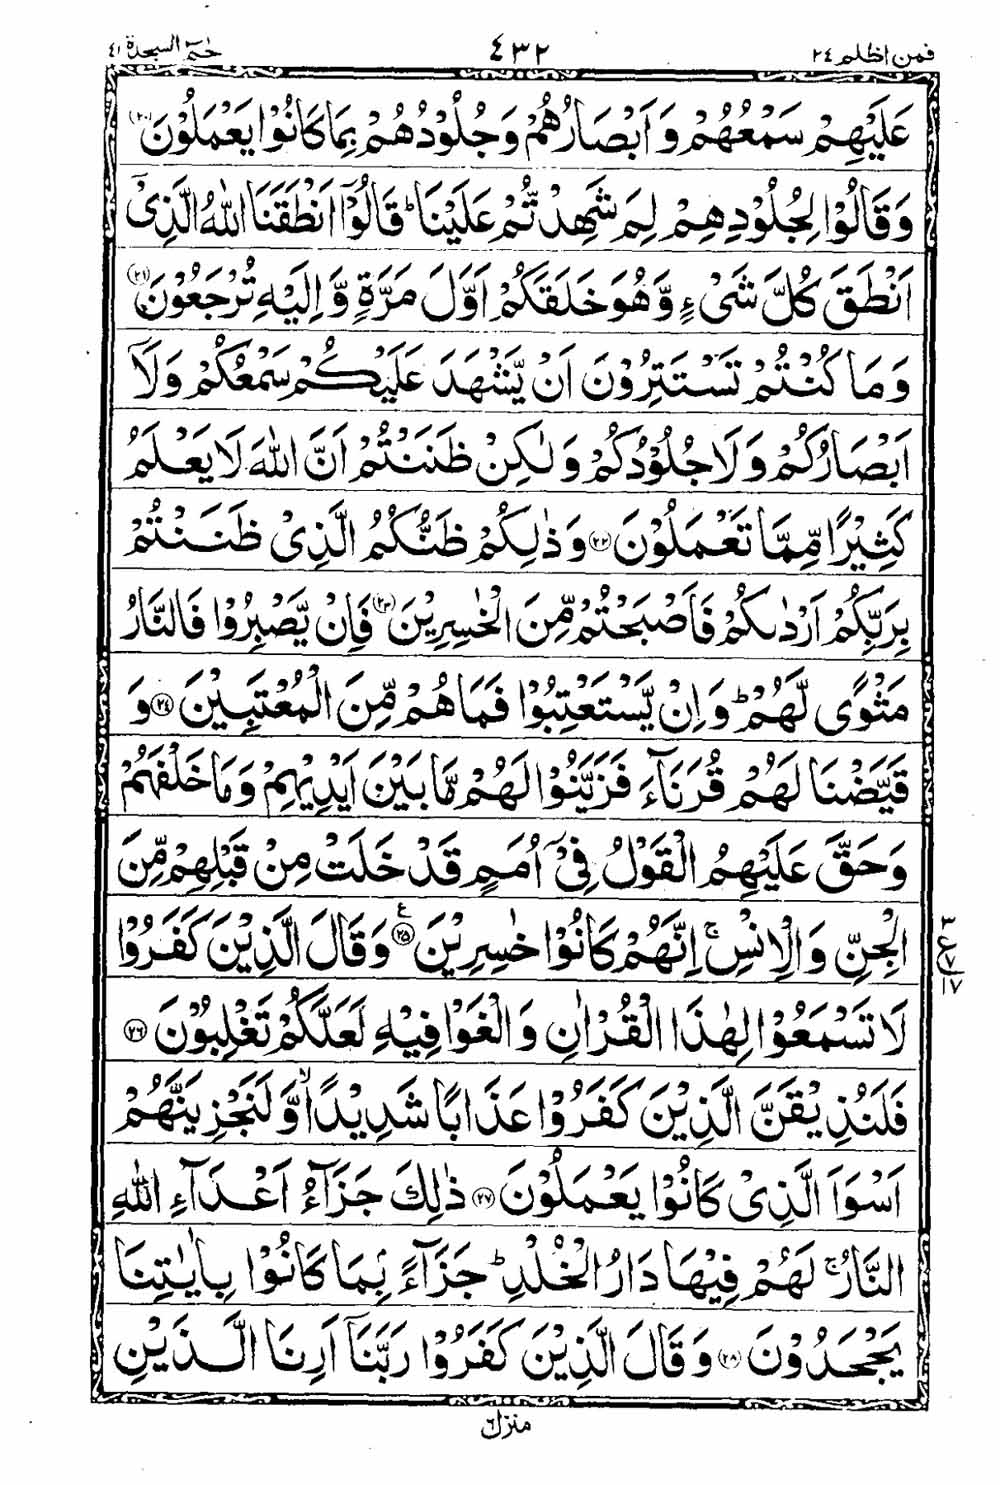 فمن اظلم ٢٤
٤٣٢
حٰمٓ السجدة ٤١
عَلَيْهِمْ سَمْعُهُمْ وَ اَبْصَارُهُمْ وَ جُلُوْدُهُمْ بِمَا كَانُوْا يَعْمَلُوْنَ ﴿٢٠﴾
وَ قَالُوْا لِجُلُوْدِهِمْ لِمَ شَهِدْتُّمْ عَلَيْنَا ؕ قَالُوْۤا اَنْطَقَنَا اللّٰهُ الَّذِیْۤ
اَنْطَقَ كُلَّ شَیْءٍ وَّ هُوَ خَلَقَكُمْ اَوَّلَ مَرَّةٍ وَّ اِلَيْهِ تُرْجَعُوْنَ ﴿٢١﴾
وَ مَا كُنْتُمْ تَسْتَتِرُوْنَ اَنْ يَّشْهَدَ عَلَيْكُمْ سَمْعُكُمْ وَ لَاۤ
اَبْصَارُكُمْ وَ لَا جُلُوْدُكُمْ وَ لٰكِنْ ظَنَنْتُمْ اَنَّ اللّٰهَ لَا يَعْلَمُ
كَثِيْرًا مِّمَّا تَعْمَلُوْنَ ﴿٢٢﴾ وَ ذٰلِكُمْ ظَنُّكُمُ الَّذِیْ ظَنَنْتُمْ
بِرَبِّكُمْ اَرْدٰىكُمْ فَاَصْبَحْتُمْ مِّنَ الْخٰسِرِيْنَ ﴿٢٣﴾ فَاِنْ يَّصْبِرُوْا فَالنَّارُ
مَثْوًى لَّهُمْ ؕ وَ اِنْ يَّسْتَعْتِبُوْا فَمَا هُمْ مِّنَ الْمُعْتَبِيْنَ ﴿٢٤﴾ وَ
قَيَّضْنَا لَهُمْ قُرَنَآءَ فَزَيَّنُوْا لَهُمْ مَّا بَيْنَ اَيْدِيْهِمْ وَ مَا خَلْفَهُمْ
وَ حَقَّ عَلَيْهِمُ الْقَوْلُ فِیْۤ اُمَمٍ قَدْ خَلَتْ مِنْ قَبْلِهِمْ مِّنَ
الْجِنِّ وَ الْاِنْسِ ۚ اِنَّهُمْ كَانُوْا خٰسِرِيْنَ ﴿٢٥﴾ ع وَ قَالَ الَّذِيْنَ كَفَرُوْا
٣
ع ٧
١٧
لَا تَسْمَعُوْا لِهٰذَا الْقُرْاٰنِ وَ الْغَوْا فِيْهِ لَعَلَّكُمْ تَغْلِبُوْنَ ﴿٢٦﴾
فَلَنُذِيْقَنَّ الَّذِيْنَ كَفَرُوْا عَذَابًا شَدِيْدًا ۙ وَّ لَنَجْزِيَنَّهُمْ
اَسْوَاَ الَّذِیْ كَانُوْا يَعْمَلُوْنَ ﴿٢٧﴾ ذٰلِكَ جَزَآءُ اَعْدَآءِ اللّٰهِ
النَّارُ ۚ لَهُمْ فِيْهَا دَارُ الْخُلْدِ ؕ جَزَآءًۢ بِمَا كَانُوْا بِاٰيٰتِنَا
يَجْحَدُوْنَ ﴿٢٨﴾ وَ قَالَ الَّذِيْنَ كَفَرُوْا رَبَّنَاۤ اَرِنَا الَّذَيْنِ
منزل ٦